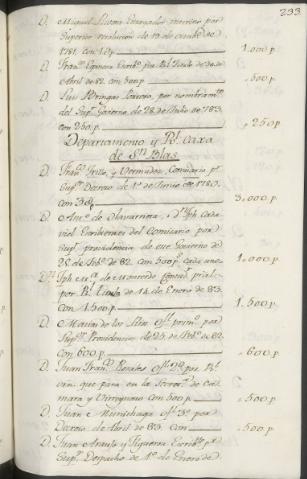 233
D. Miguel Lucas Enarques interino por
Superior resolucion de 19 de Octubre de
1781. con 1.0 p. 1.000 p
D. Fran.co Espinosa Escrib.te por R.l Titulo de 30 de
Abril de 82. con 500 p .500 p
D. Luis Bringas García, por nombramto
del Sup.r Govierno de 28 de Julio de 783.
con 250. p. .250 p
Departamento y R.l Caxa
de S.n Blas
D. Fran.co Trillo, y Bermudez, Comisario p.r
Sup.r Decreto de 1.o de Junio de 1780.
con 3.000 p. 3.000 p
D. Ant.o de Chavarria, y D.n Jph Cada
viel Escribientes del Comisario por
Sup.r providencia de ese Govierno de
25 de Feb.o de 82. con 500 p. cada uno 1.000 p
D.n Jph M.a de Contad.r
por R.l Titulo de 14 de Enero de 83.
con 1.500 p. 1.500 p
D. Martin de los Of.l prim.o por
Sup.r Providencia de 25 de Feb.o de 82
con 600 p. .600 p
D. Juan Fran.co Of.l 2.o por R.l
orn. que para en la Secret.a de Ca
mara y Virreynato con 500 p. .500 p
D. Juan Of.l 3.o por
Decreto de Abril de 83. con .500 p
D. Juan Araujo y Figueroa Escrib.te p.r
Sup.r Despacho de 1.o de Enero de